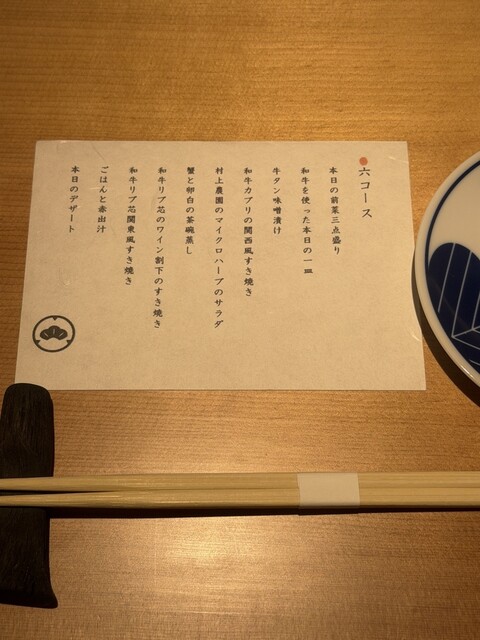 六コース
本日の前菜三点盛り
和牛を使った本日の一皿
牛タン味噌漬け
和牛カブリの関西風すき焼き
村上農園のマイクロハーブのサラダ
蟹と卵白の茶碗蒸し
和牛リブ芯のワイン割下のすき焼き
和牛リブ芯関東風すき焼き
ごはんと赤出汁
本日のデザート